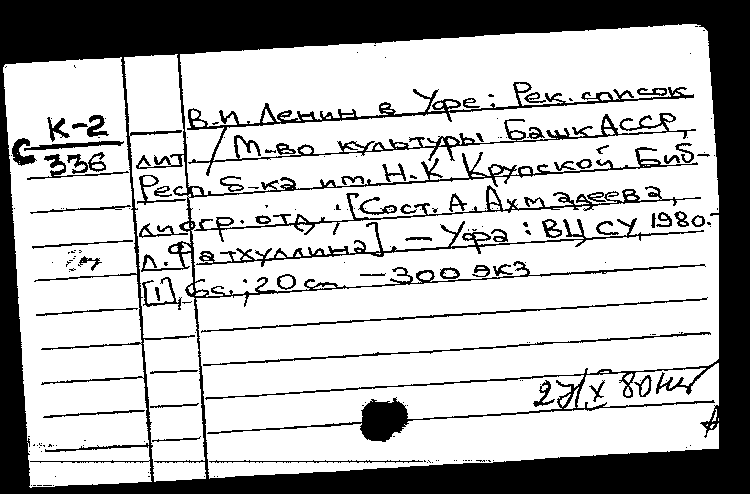 К-2
С 336
В.И. Ленин в Уфе: Рек. список
лит. / М-во культуры БашкАССР,
Респ. б-ка им. Н.К. Крупской. Биб-
лиогр. отд.; [Сост. А. Ахмадеева,
Л. Фатхуллина]. — Уфа: ВЦ СУ, 1980.-
[1], 6с.; 20 см. — 300 экз
27/X 80